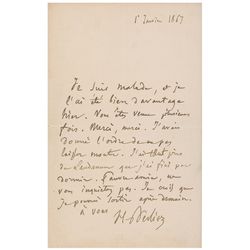 5 Janvier 1867
Je suis malade, et je
l'ai été bien d'avantage
hier. Vous êtes venu plusieurs
fois. Merci, merci. J'avais
donné l'ordre de ne pas
laisser monter. J'ai tant pris
de Laudanum que j'ai fini par
dormir. Pauvre amie, ne
vous inquiétez pas. Je crois que
je pourrai sortir après demain.
à vous
H. Berlioz